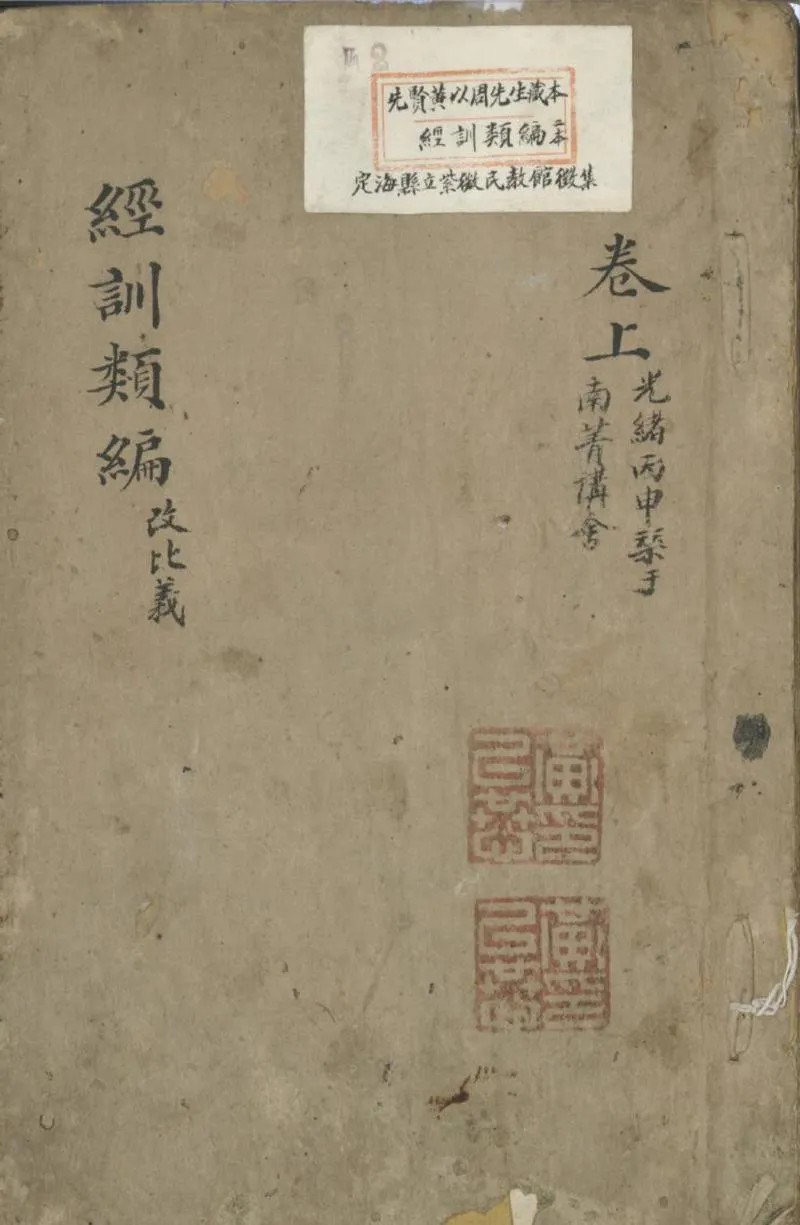 先賢黄以周先生藏本
經訓類編二本
定海縣立紫微民敎館徵集
卷上
光緒丙申槧于
南菁講舍
經訓類編
改比義